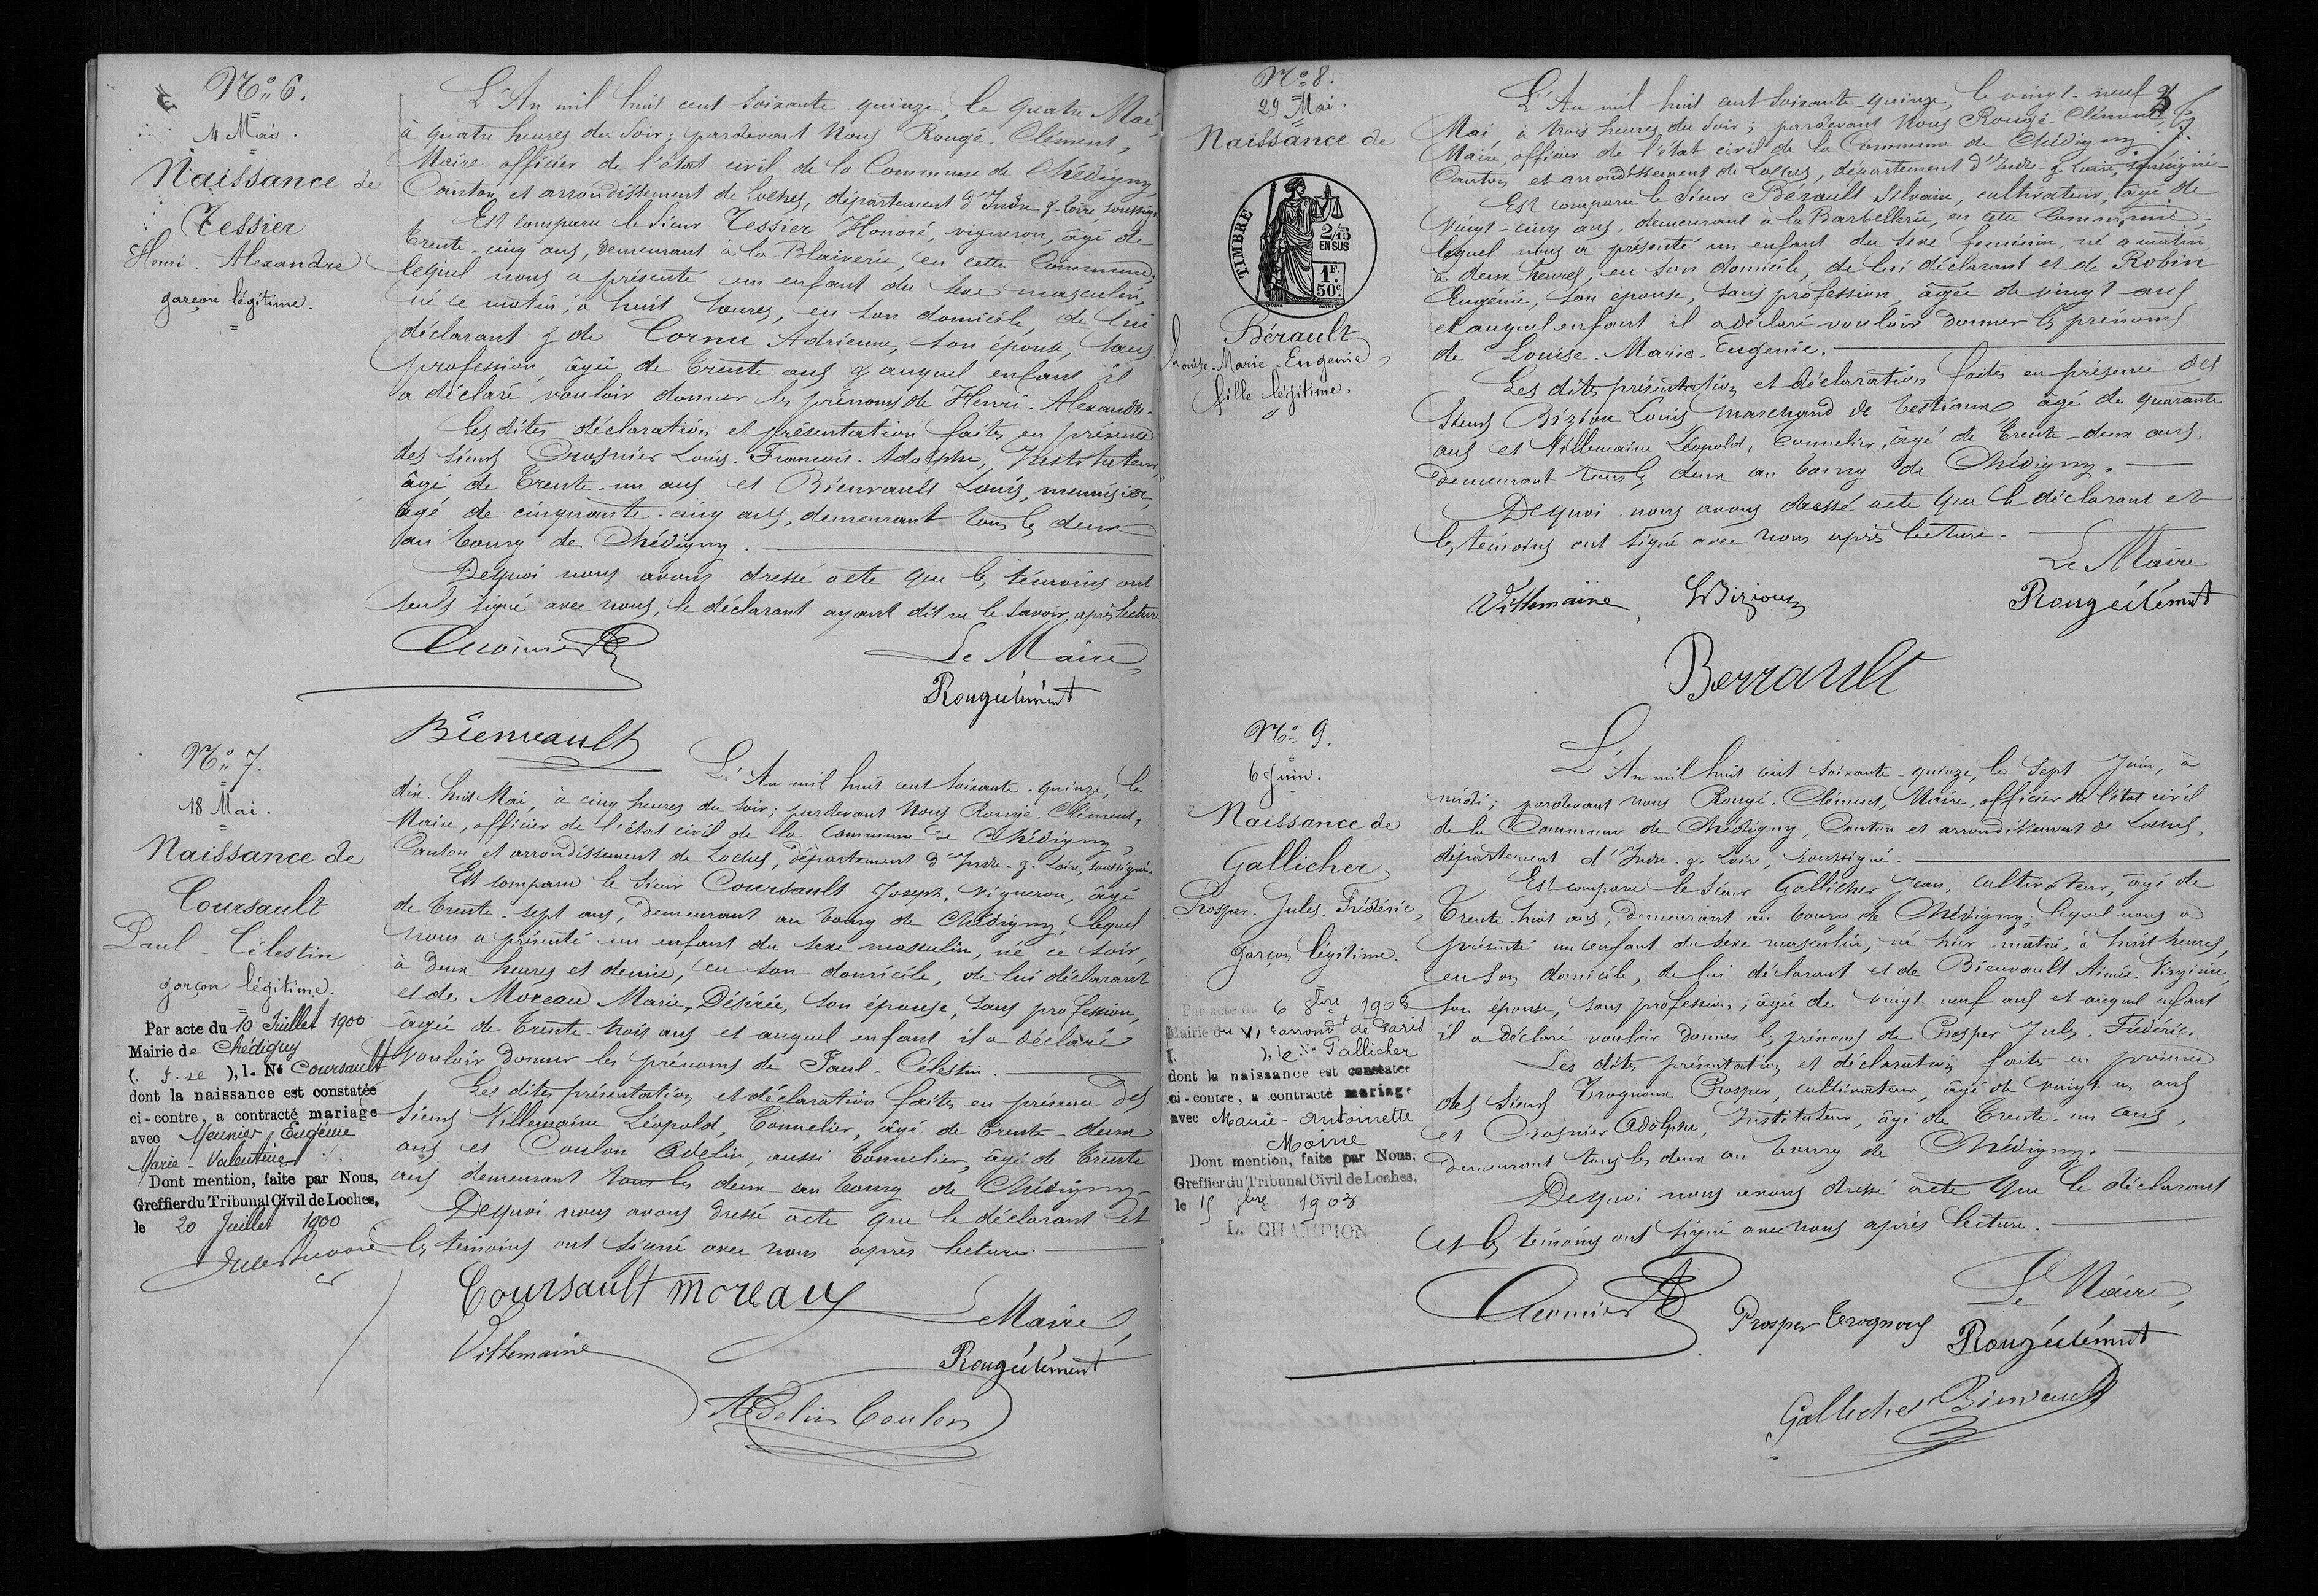 N° 6.
4 Mai.
Naissance de
Tessier
Henri. Alexandre
garçon légitime.
L'An mil huit cent soixante quinze, le quatre Mai,
à quatre heures du soir; pardevant Nous Rougé. Clément,
Maire officier de l'état civil de la Commune de Chédigny
Canton et arrondissement de Loches, département d'Indre-&-Loire soussigné
Est comparu le sieur Tessier Honoré, vigneron, âgé de
trente-cinq ans, demeurant à la Blaiverie, en cette Commune,
lequel nous a présenté un enfant du sexe masculin,
né ce matin, à huit heures, en son domicile, de lui
déclarant & de Cornu Adrienne, son épouse, sans
profession, âgée de trente ans & auquel enfant il
a déclaré vouloir donner les prénoms de Henri. Alexandre.
Les dites déclaration et présentation faites en présence
des sieurs Crosnier Louis. François. Adolphe, Instituteur,
âgé de trente-un ans et Bienvault Louis, menuisier,
âgé de cinquante-cinq ans, demeurant tous les deux
au bourg de Chédigny.
Dequoi nous avons dressé acte que les témoins ont
seuls signé avec nous, le déclarant ayant dit ne le savoir, après lecture
Crosnier
Le Maire,
Rougé Clément
Bienvault
N° 7.
18 Mai.
Naissance de
Coursault
Paul-Célestin
garçon légitime.
Par acte du 10 Juillet 1900
Mairie de Chédigny
( I. &. L. ), le Né Coursault
dont la naissance est constatée
ci-contre, a contracté mariage
avec Meunier Eugénie
Marie-Valentine
Dont mention, faite par Nous,
Greffier du Tribunal Civil de Loches,
le 20 Juillet 1900
L'An mil huit cent soixante-quinze, le
dix-huit Mai, à cinq heures du soir; pardevant Nous Rougé. Clément,
Maire, officier de l'état civil de la Commune de Chédigny,
Canton et arrondissement de Loches, département d'Indre-&-Loire, soussigné.
Est comparu le sieur Coursault Joseph, vigneron, âgé
de trente-sept ans, demeurant au bourg de Chédigny, lequel
nous a présenté un enfant du sexe masculin, né ce soir,
à deux heures et demie, en son domicile, de lui déclarant
et de Moreau Marie-Désirée, son épouse, sans profession,
âgée de trente-trois ans et auquel enfant il a déclaré
vouloir donner les prénoms de Paul-Célestin.
Les dites présentation et déclaration faites en présence des
sieurs Villemaine Léopold, Tonnelier, âgé de trente-deux
ans et Coulon Adelin, aussi tonnelier, âgé de trente
ans demeurant tous les deux au bourg de Chédigny.
Dequoi nous avons dressé acte que le déclarant et
les témoins ont signé avec nous après lecture.
Coursault moreau
Le Maire,
Villemaine
Rougé Clément
Adelin Coulon
N° 8.
29 Mai.
Naissance de
TIMBRE
2/10
EN SUS
1F.
50c.
Bérault
Louise-Marie-Eugénie
fille légitime.
3
L'An mil huit cent soixante-quinze, le vingt-neuf
Mai, à trois heures du soir; pardevant Nous Rougé-Clément
Maire, officier de l'état civil de la Commune de Chédigny
Canton et arrondissement de Loches, département d'Indre-&-Loire, soussigné
Est comparu le sieur Bérault Silvain, cultivateur, âgé de
vingt-cinq ans, demeurant à la Barbellerie, en cette Commune,
lequel nous a présenté un enfant du sexe féminin, né ce matin,
à deux heures, en son domicile, de lui déclarant et de Robin
Eugénie, son épouse, sans profession, âgée de vingt ans
et auquel enfant il a déclaré vouloir donner les prénoms
de Louise-Marie-Eugénie.
Les dites présentation et déclaration faites en présence des
sieurs Bizion Louis, marchand de bestiaux, âgé de quarante
ans et Villemaine Léopold, tonnelier, âgé de trente-deux ans,
demeurant tous les deux au bourg de Chédigny.
Dequoi nous avons dressé acte que le déclarant et
les témoins ont signé avec nous après lecture.
Le Maire
Villemaine
LBizion
Rougé Clément
Berrault
N° 9.
6 Juin.
Naissance de
Gallicher
Prosper. Jules. Frédéric,
garçon légitime.
Par acte du 6 8bre 1903
Mairie du VIe arrondt de Paris
( ), le Né Gallicher
dont la naissance est constatée
ci-contre, a contracté mariage
avec Marie-Antoinette
Moine
Dont mention, faite par Nous,
Greffier du Tribunal Civil de Loches,
le 15 8bre 1903
L. CHAMPION
L'An mil huit cent soixante-quinze, le sept Juin, à
midi; pardevant nous Rougé-Clément, Maire, officier de l'état civil
de la Commune de Chédigny, Canton et arrondissement de Loches,
département d'Indre-&-Loire, soussigné.
Est comparu le sieur Gallicher Jean, cultivateur, âgé de
trente-huit ans, demeurant au bourg de Chédigny, lequel nous a
présenté un enfant du sexe masculin, né hier matin, à huit heures,
en son domicile, de lui déclarant et de Bienvault Aimée-Virginie,
son épouse, sans profession, âgée de vingt-neuf ans et auquel enfant
il a déclaré vouloir donner les prénoms de Prosper Jules. Frédéric.
Les dites présentation et déclaration faites en présence
des sieurs Trognoux Prosper, cultivateur, âgé de vingt-un ans
et Crosnier Adolphe, Instituteur, âgé de trente-un ans,
demeurant tous les deux au bourg de Chédigny.
Dequoi nous avons dressé acte que le déclarant
et les témoins ont signé avec nous après lecture.
Crosnier
Le Maire,
Prosper Trognoux
Rougé Clément
Gallicher Bienvault